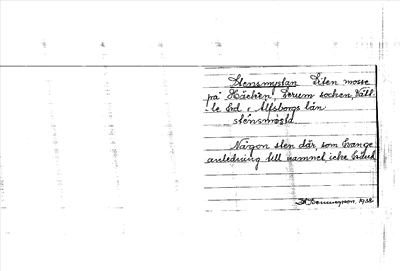 Stensmyglan Liten mosse
på Häcken, Lerum socken, Vätt-
le hd, Alfsborgs län
stensmǫgla
Någon sten där, som
anledning till namnet icke
1938